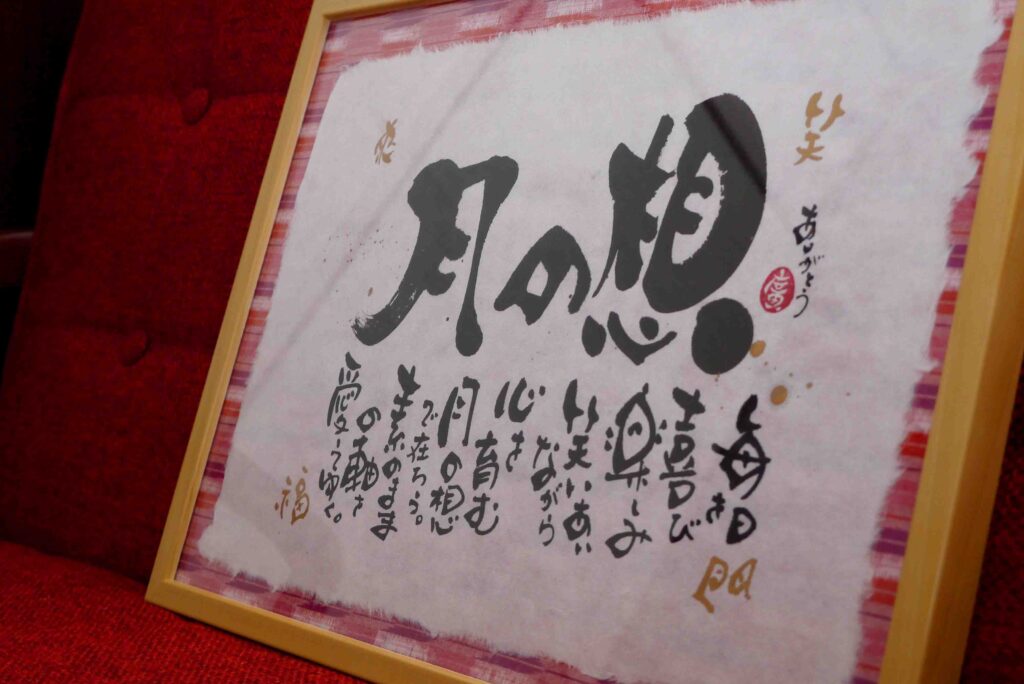 月の想
笑
ありがとう
毎日を
喜び
楽しみ
笑いあい
ながら
心を
育む
月の想
で在ろう。
素のまま
の軸を
愛してゆく。
門
福